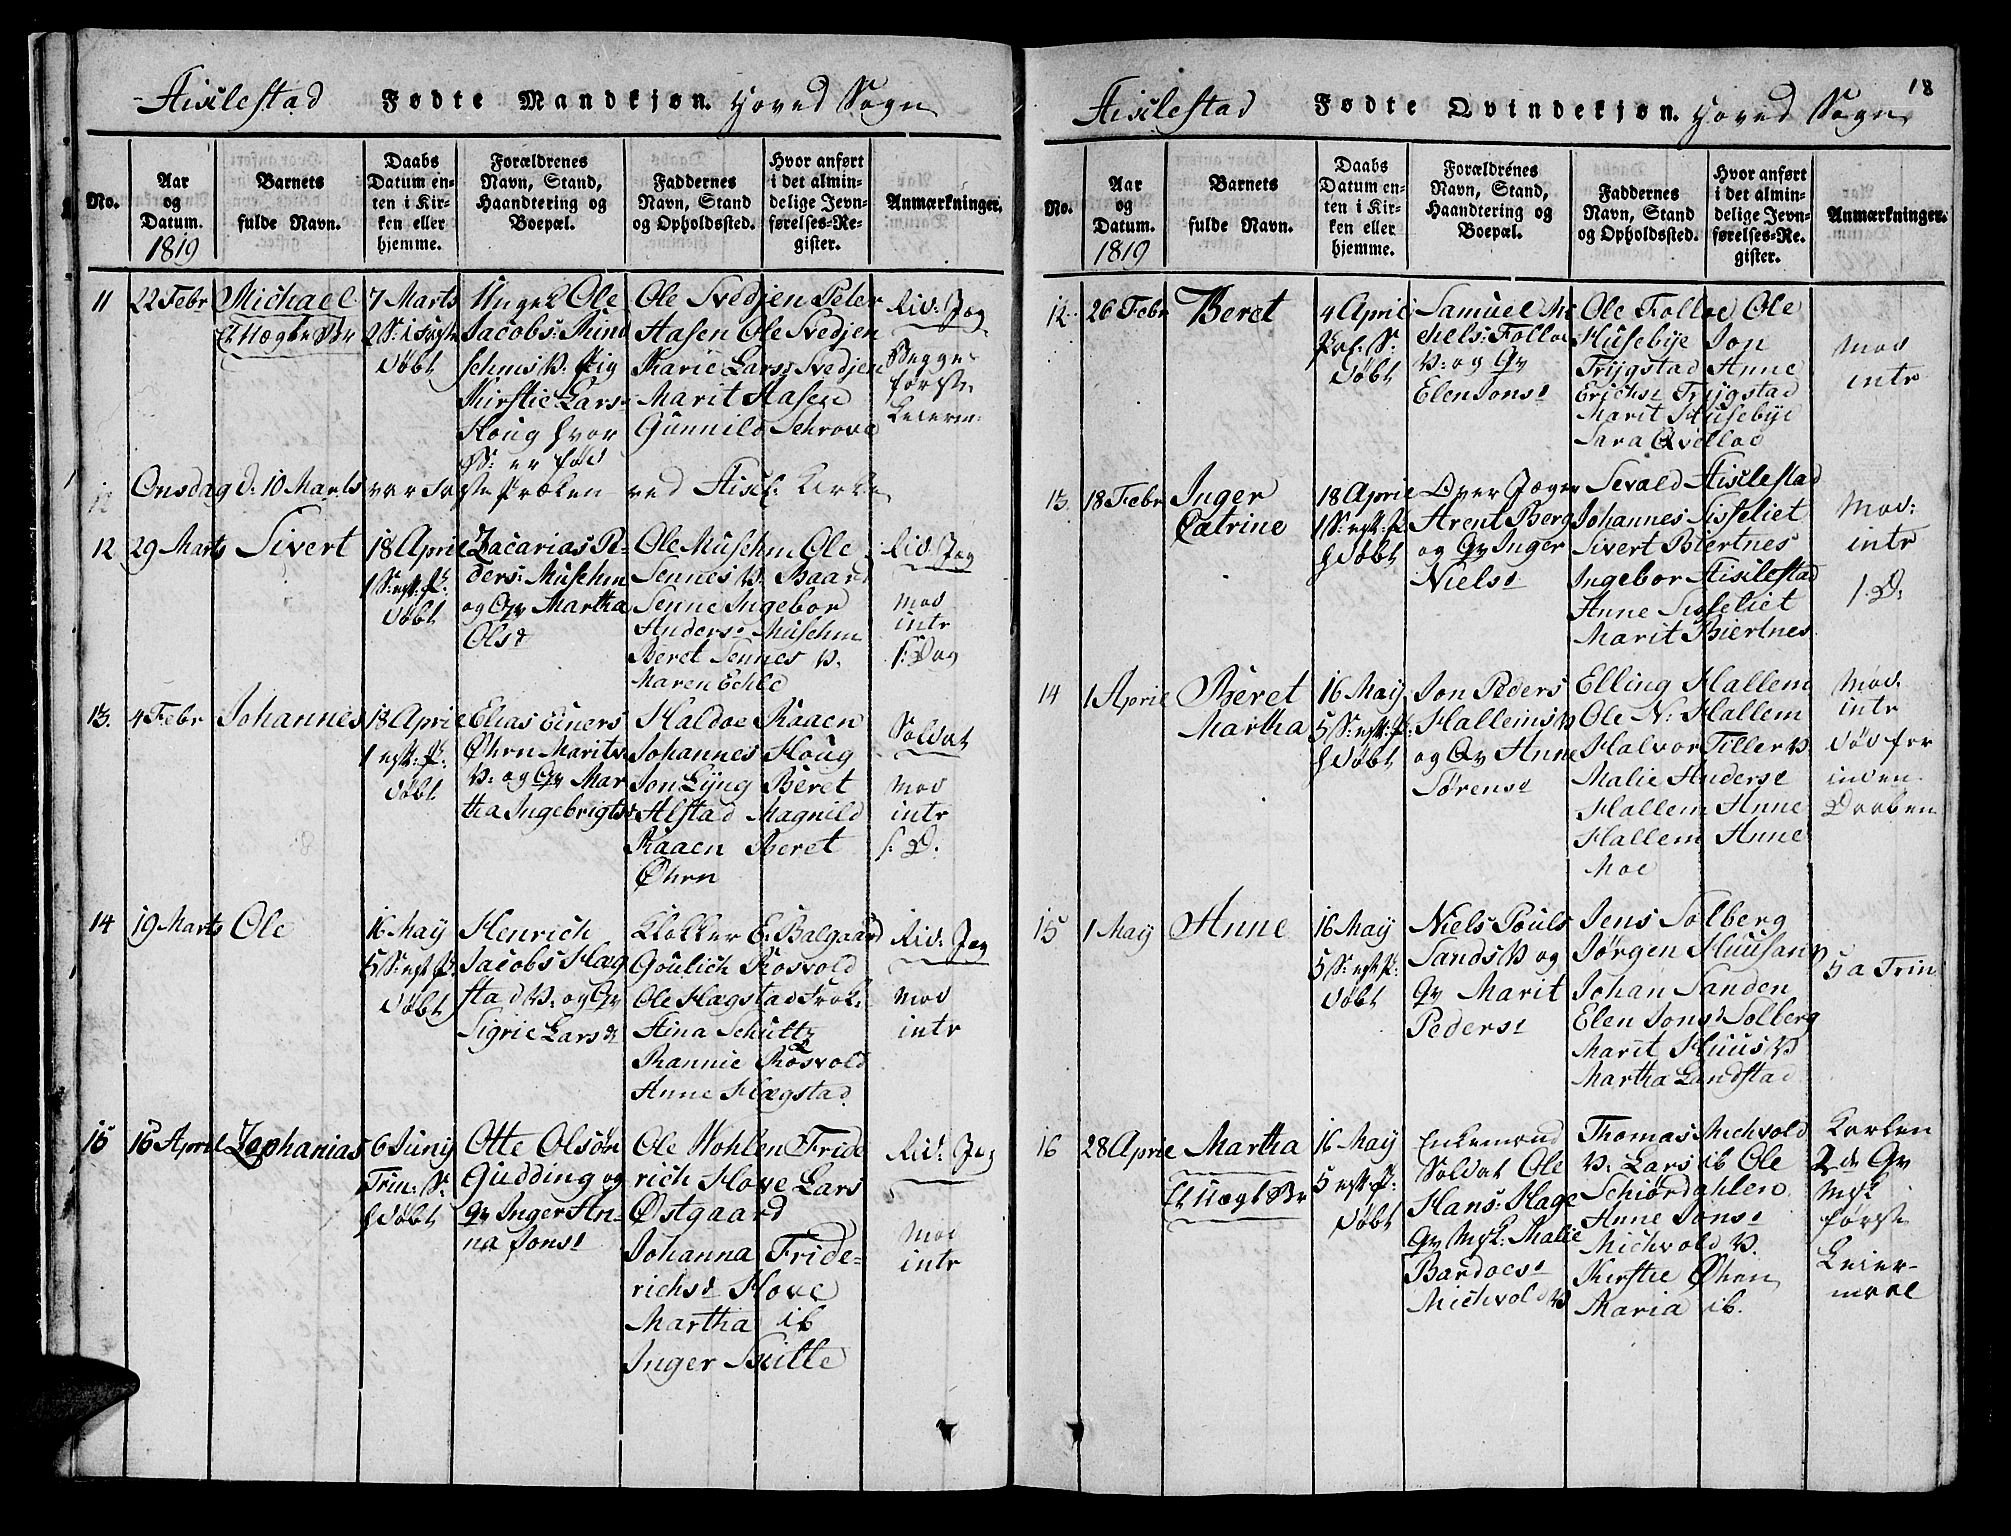 Aislestad Fødte Mandkjøn. Hoved Sogn
No.
Aar og Datum. 1819
Barnets fulde Navn.
Daabs Datum enten i Kirken eller hjemme.
Forældrenes Navn, Stand, Haandtering og Boepæl.
Faddernes Navn, Stand og Opholdssted.
Hvor anført i det almindelige Jevnførelses-Register.
Anmærkninger.
11
22 Febr
Michael
Et Uægte Br
7 Marts
2 S: i Faste
døbt
Ungek Ole
Jacobs:
V: Pig
Kirstie Lars
Houg hvor
B: er fød
Ole Svedjen Peter
Hasen Ole Svedjen
Marie Lars: Svedjen
Marit Hasen
Gunnild Schrove
Rid: Jæg
Begge
første
Leierm:
Onsdag d: 10 Marts var Faste Præken ved Aisl: Kirke
12
29 Marts
Sivert
18 April
1 S: eft: P:
døbt
Zacarias Pe-
ders: Musehm
og Qv Martha
Olsd
Ole Musehm Ole
Sennes V. Baar
Senne Ingebor
Anders: Musehm
Beret Sennes V.
Maren Echle
Rid: Jæg
Mod
intr
1. Dag
13.
4 Febr
Johannes
18 April
1 eft: P:
døbt
Elias Einers
Øhrn Marits
V: og Qv Mar
tha Ingebrigtsd
Haldoe Raaen
Johannes Houg
Jon Lyng Beret
Alstad Magnild
Raaen Beret
Øhrn
Soldat
Mod
intr
1. D.
14
19 Marts
Ole
16 May
5 S: eft P:
døbt
Henrich
Jacobs Hag
stad V: og Qv
Sigrie Larsd
Klokker E: Balgaard
Goulich Rosvold
Ole Hagstad Frøk:
Stina Schultz
Rannie Rosvold
Anne Hægstad
Rid: Jæg
Mod
intr
15
15 April
Zephanias
6 Juny
Trin: S:
hdøbt
Otte Olsøn
Gudding og
Qv Inger An-
na Jons:
Ole Wohlen Fride
rich Hove Lars
Østgaard
Johanna Fride-
richsd Hove
Martha ib
Inger Tville
Rid: Jæg
Mod
intr
18
Aislestad Fødte Qvindekjøn. Hoved Sogn
No.
Aar og Datum. 1819
Barnets fulde Navn.
Daabs Datum enten i Kirken eller hjemme.
Forældrenes Navn, Stand, Haandtering og Boepæl.
Faddernes Navn, Stand og Opholdssted.
Hvor anført i det almindelige Jevnførelses-Register.
Anmærkninger.
12.
26 Febr
Beret
4 April
Pal: S:
døbt
Samuel Mi
chels: Folloe
V: og Qv
Elen Jons:
Ole Folloe Ole
Husebye Jon
Trygstad Anne
Erichs: Trygstad
Marit Husebye
Sara Qvelloe
Mod
intr
13.
18 Febr
Inger
Catrine
18 April
1 S: eft: P:
hdøbt
Over Jæger
Arent Berg
og Qv Inger
Niels:
Sevald Aislestad
Johannes Sisseliet
Sivert Biertnes
Ingebor Aislestad
Anne Sisseliet
Marit Biertnes
Mod:
intr
1. D:
14
1 April
Beret
Martha
16 May
5 S: eft: P:
hdøbt
Jon Peders
Hallems V
og Qv Anne
Sørens:
Elling Hallem
Ole N: Hallem
Halvor Tiller V.
Malie Anders:
Hallem Anne
Hallem Anne
Moe
Mod:
intr
død for
inden
Daaben
15
1 May
Anne
16 May
5 S: eft P:
døbt
Niels Pouls
Sands V og
Qv Marit
Peders:
Jens Solberg
Jørgen Huusan V
Johan Sanden
Elen Jons: Solberg
Marit Huus V
Martha Landstad
5 a Trin
16
28 April
Martha
Et Uægt Br
16 May
5 eft P:
døbt
Enkemand
Soldat Ole
Hans: Hage
Qv Msk: Malie
Bardoes:
Michvold V
Thomas Michvold
V: Lars ib Ole
Schiørdahlen
Anne Jons:
Michvold V.
Kirstie Øhrn
Maria ib.
Karlen
2de Qv
Msk
første
Leier-
maal